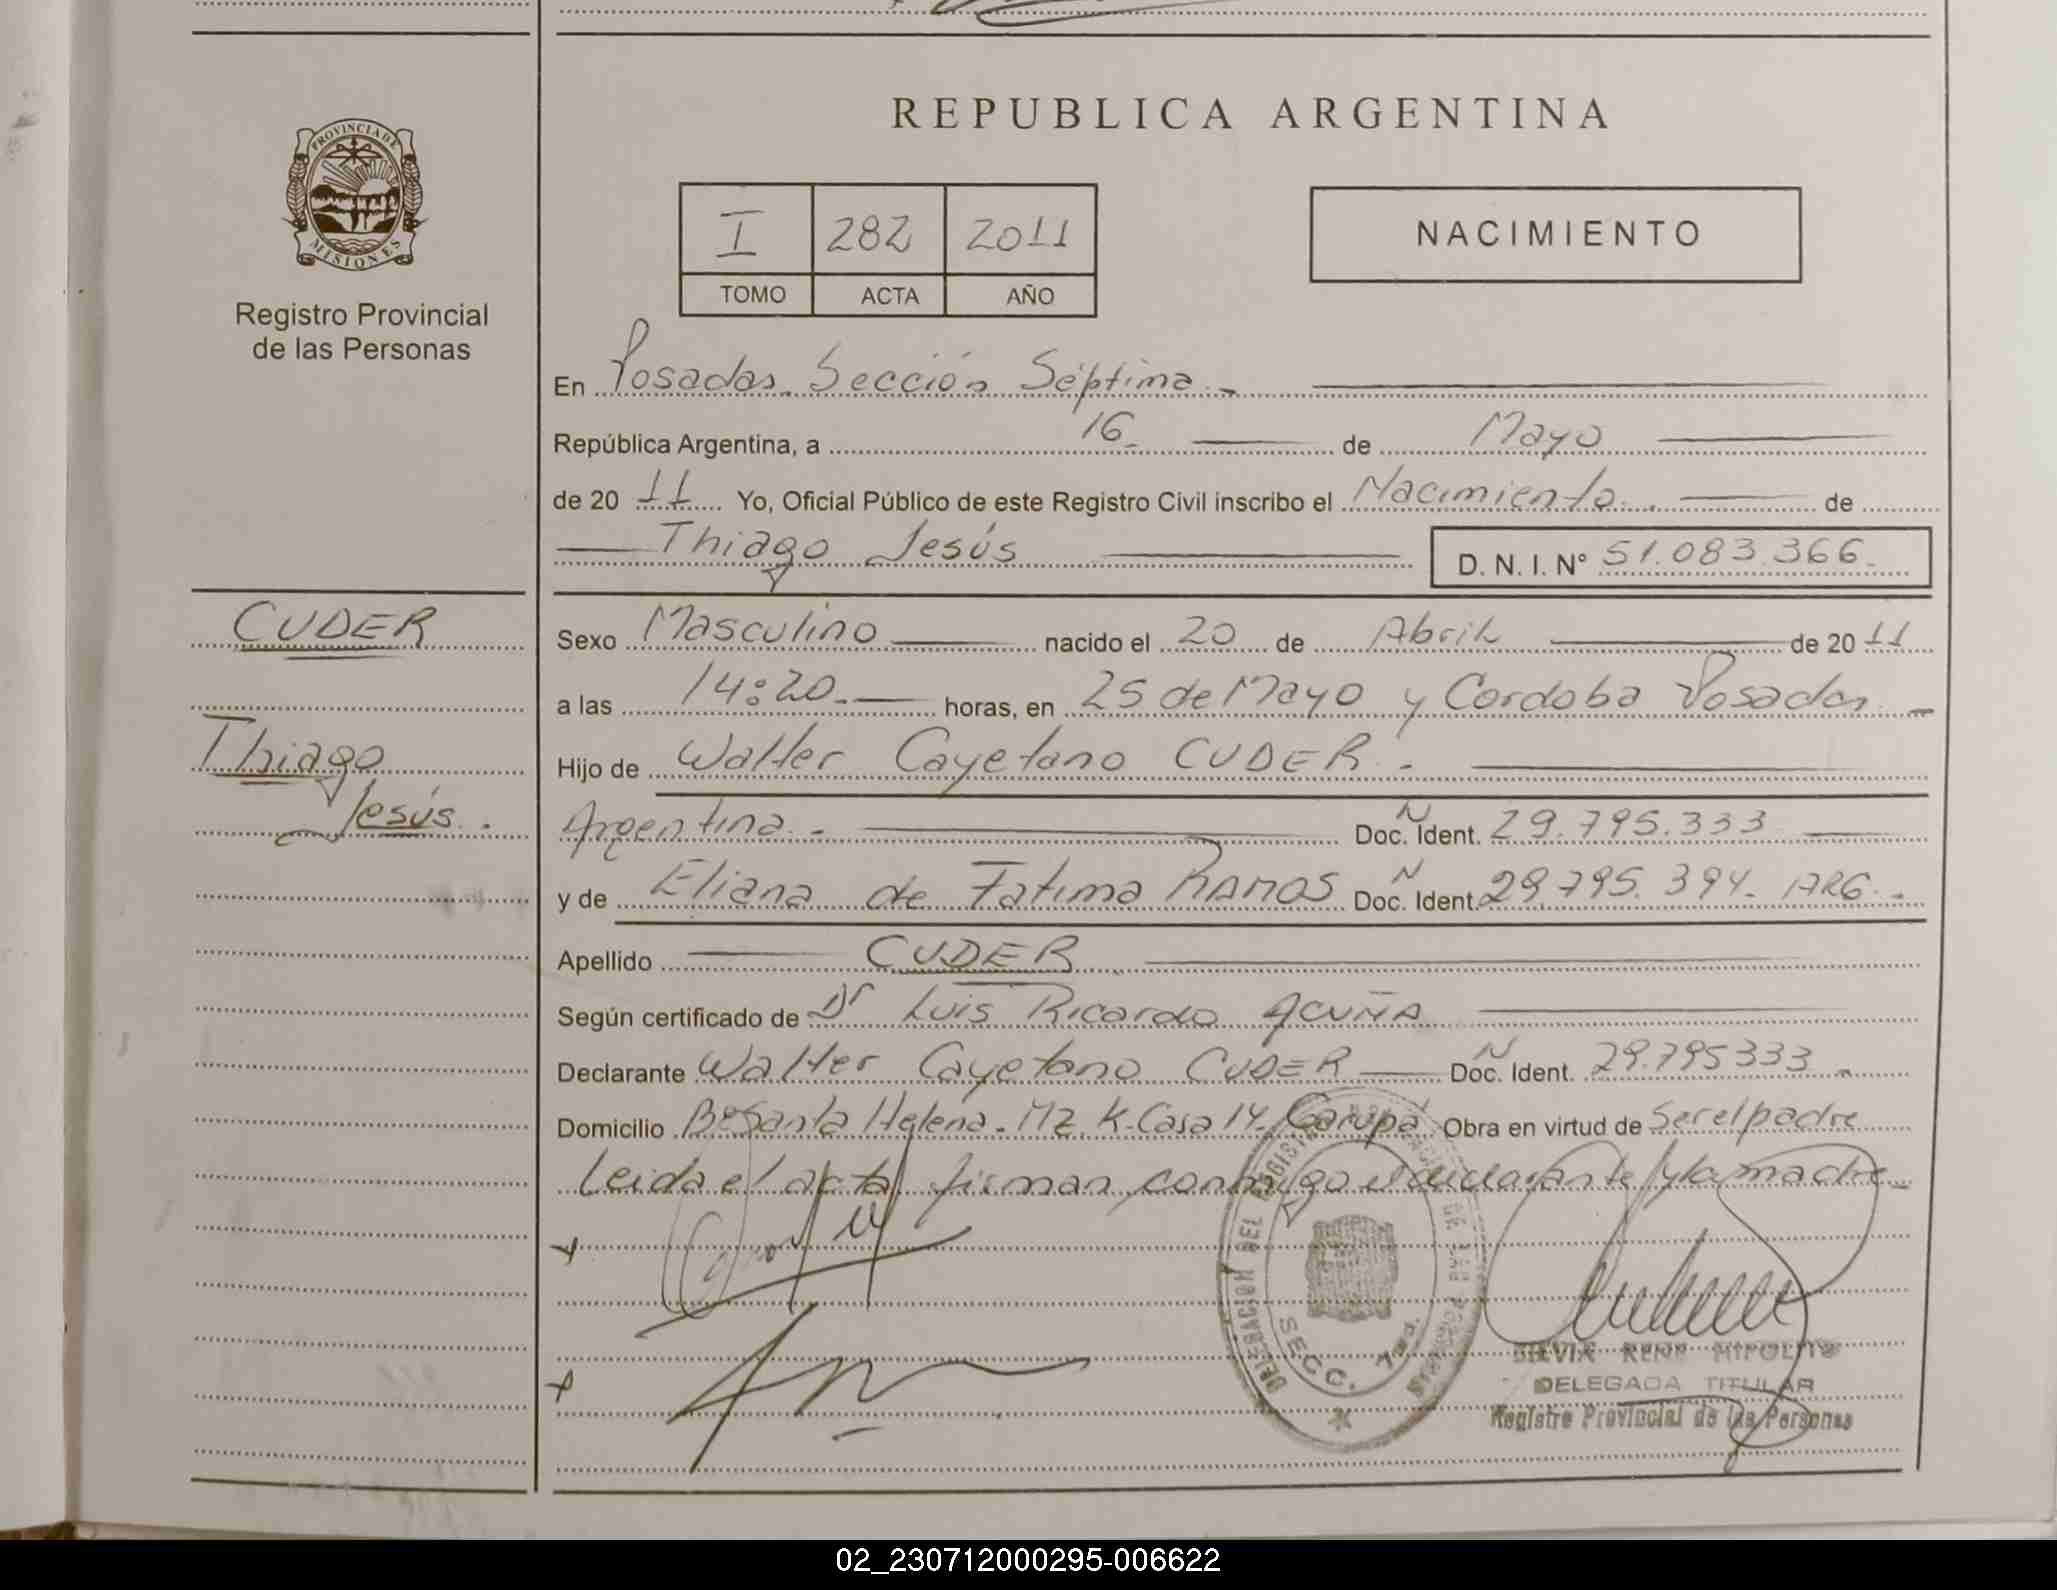 REPUBLICA ARGENTINA
PROVINCIA DE
MISIONES
Registro Provincial
de las Personas
I 282 2011
TOMO ACTA AÑO
NACIMIENTO
En Posadas. Sección Séptima.-
República Argentina, a 16- de Mayo
de 20 11 Yo, Oficial Público de este Registro Civil inscribo el Nacimiento. de
Thiago Jesús D. N. I. Nº 51.083.366-
CUDER
Thiago
Jesús.
Sexo Masculino nacido el 20 de Abril de 20 11
a las 14:20.- horas, en 25 de Mayo y Cordoba Posadas -
Hijo de Walter Cayetano CUDER.
Argentina.- Doc. N Ident. 29.795.333
y de Eliana de Fatima RAMOS Doc. N Ident. 29.795.394- ARG.-
Apellido CUDER
Según certificado de Dr Luis Ricardo ACUÑA
Declarante Walter Cayetano CUDER Doc. N Ident. 29.795333 -
Domicilio Bº Santa Helena. Mz. K-Casa 14- Garupá Obra en virtud de Ser el padre
Leida el acta firman conmigo el declarante y la madre-
DELEGACION DEL REGISTRO
SECC. 7ma.
DELEGADA TITULAR
Registro Provincial de las Personas
02_230712000295-006622